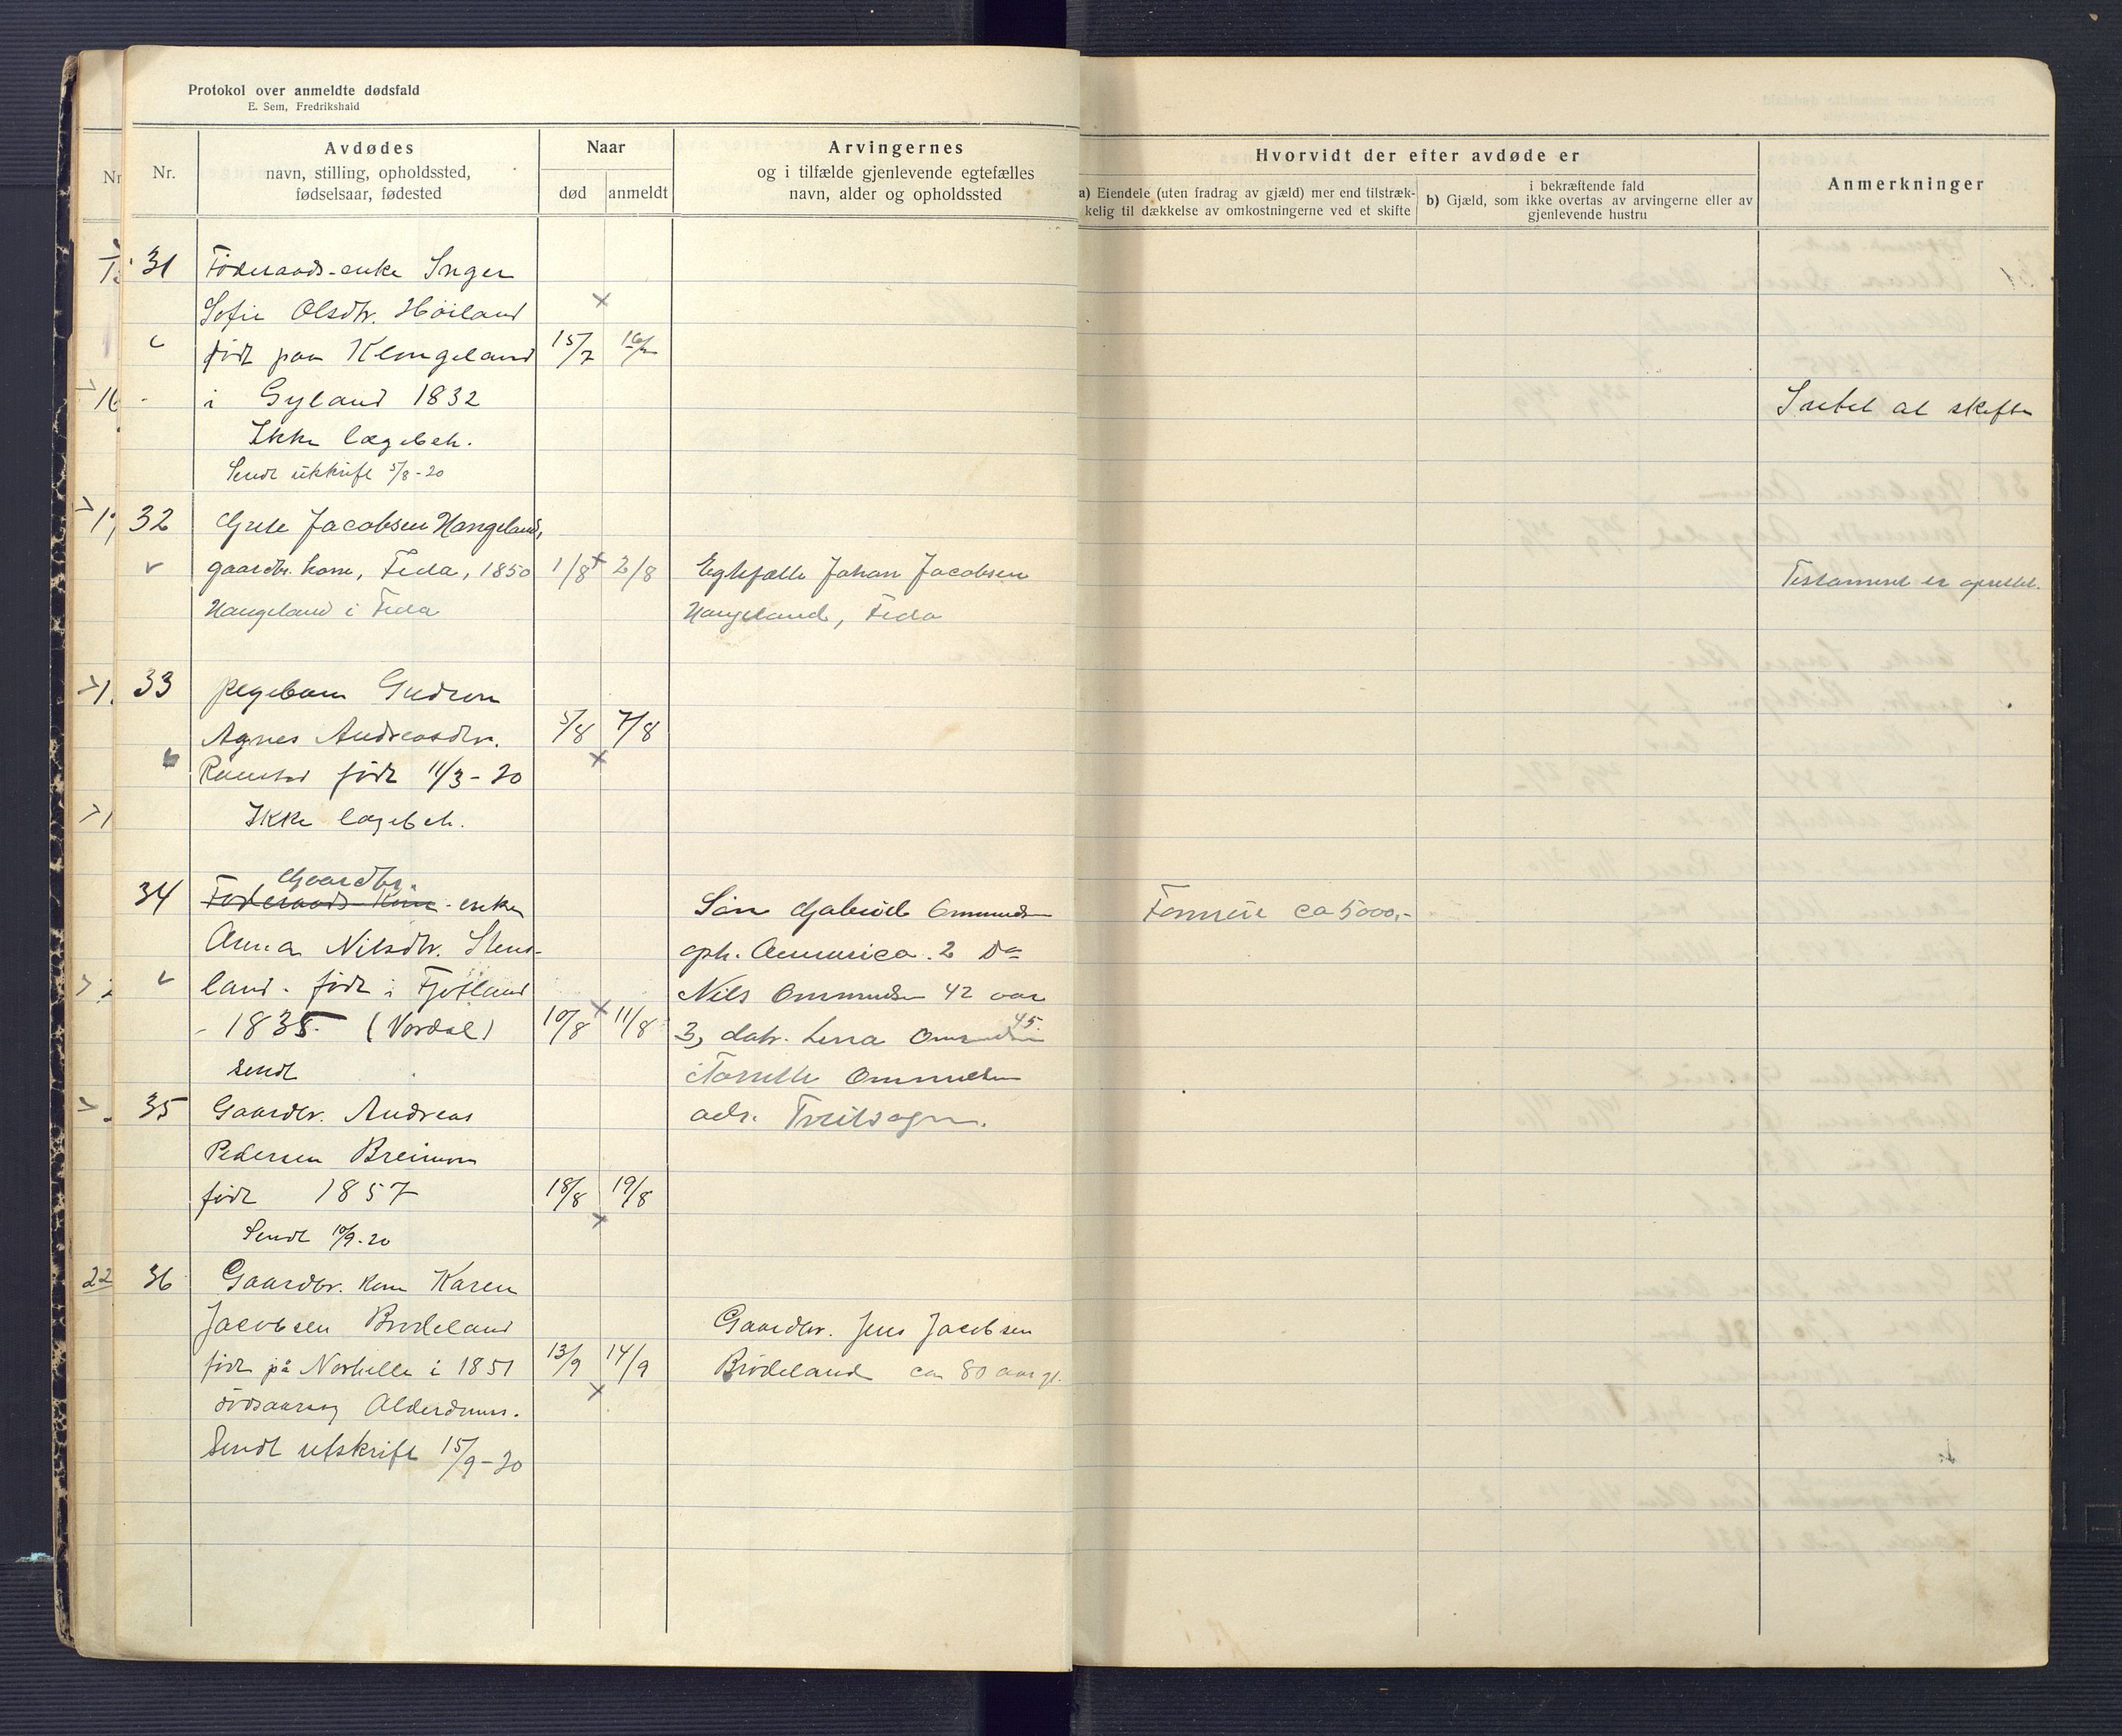 Protokol over anmeldte dødsfald
E. Sem, Fredrikshald
Nr.
Avdødes
navn, stilling, opholdssted,
fødselsaar, fødested
Naar
død
anmeldt
Arvingernes
og i tilfælde gjenlevende egtefælles
navn, alder og opholdssted
Hvorvidt der efter avdøde er
a) Eiendele (uten fradrag av gjæld) mer end tilstræk-
kelig til dækkelse av omkostningerne ved et skifte
i bekræftende fald
b) Gjæld, som ikke overtas av arvingerne eller av
gjenlevende hustru
Anmerkninger
31 Föderaads-enke Inger
Sofie Olsdtr. Höiland
födt paa Klungeland 15/7
i Gyland 1832
Ikke lægebeh.
Sendt utskrift 5/8-20
Intet at skifte
32 Grete Jacobsen Haugeland,
gaardbr. kone, Feda, 1850 1/8 2/8 Egtefælle Johan Jacobsen
Haugeland i Feda
Haugeland, Feda
Testament er oprettet.
33 pigebarn Gudrun
Agnes Andreasdtr. 5/8 7/8
födt 11/3-20
Ikke lægebeh.
34 Gaardbr.
Föderaads Kone-enke
Anna Nilsdtr. Stens-
land. födt i Fjotland
1835 (Vordal) 10/8 11/8
Sendt
Sön Gabriel Ommundsen
oph. Amerika. 2 Do
Nils Ommundsen 42 aar
3, datr. Lena Ommundsen 45
Ommundsen
adr. Tveitsogn.
Formue ca 5000,-
35 Gaardbr. Andreas
Pedersen Breimon
födt 1857 18/8 19/8
Sendt 10/9-20
36 Gaardbr. kone Karen
Jacobsen Brödeland
födt på i 1851 13/9 14/9
dödsaarsag Alderdoms.
Sendt utskrift 15/9-20
Gaardbr. Jens Jacobsen
Brödeland ca 80 aar gl.